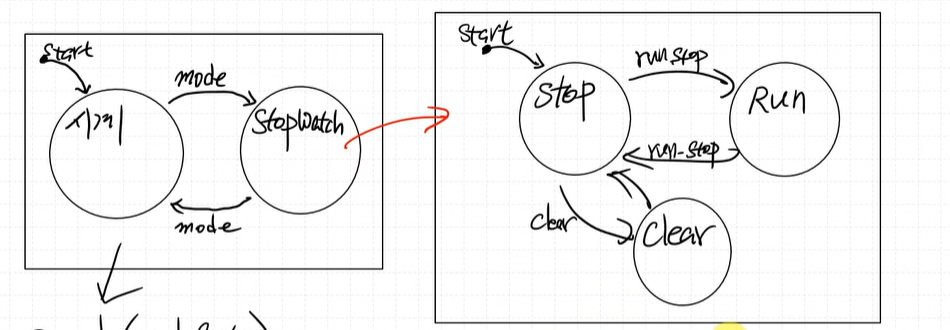 Start
mode
시계
StopWatch
mode
Start
run stop
Stop
Run
run-stop
clear
clear